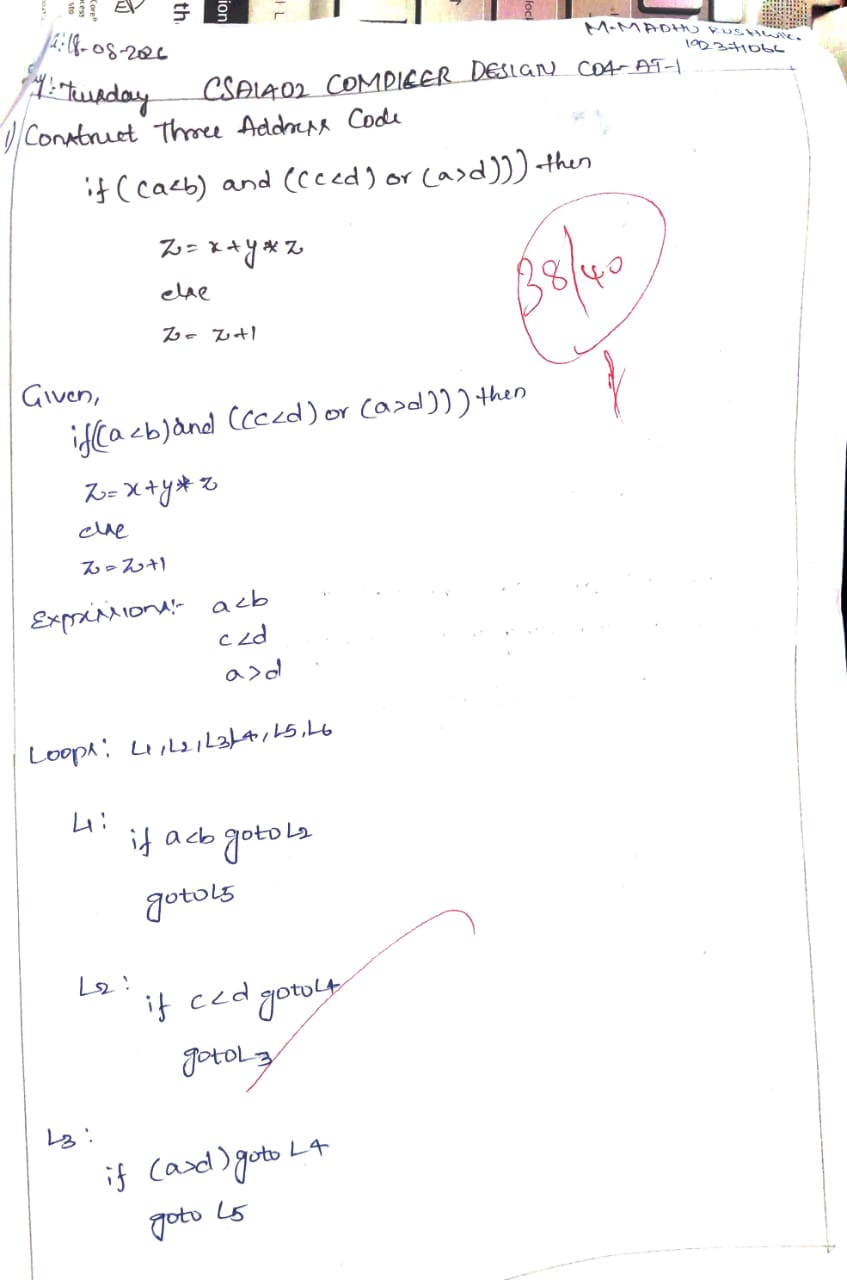 EV
th
ion
loc
M.MADHU
:18-08-2026
: Tuesday CSA1402 COMPILER DESIGN CO4-AT-1
1) Construct Three Address Code
if ((a<b) and ((c<d) or (a>d))) then
z = x+y*z
else
z = z+1
38/40
Given,
if((a<b)and ((c<d) or (a>d))) then
z=x+y*z
else
z=z+1
Expressions:- a<b
c<d
a>d
Loops: L1,L2,L3,L4,L5,L6
L1:
if a<b goto L2
goto L5
L2:
if c<d goto L4
goto L3
L3:
if (a>d) goto L4
goto L5